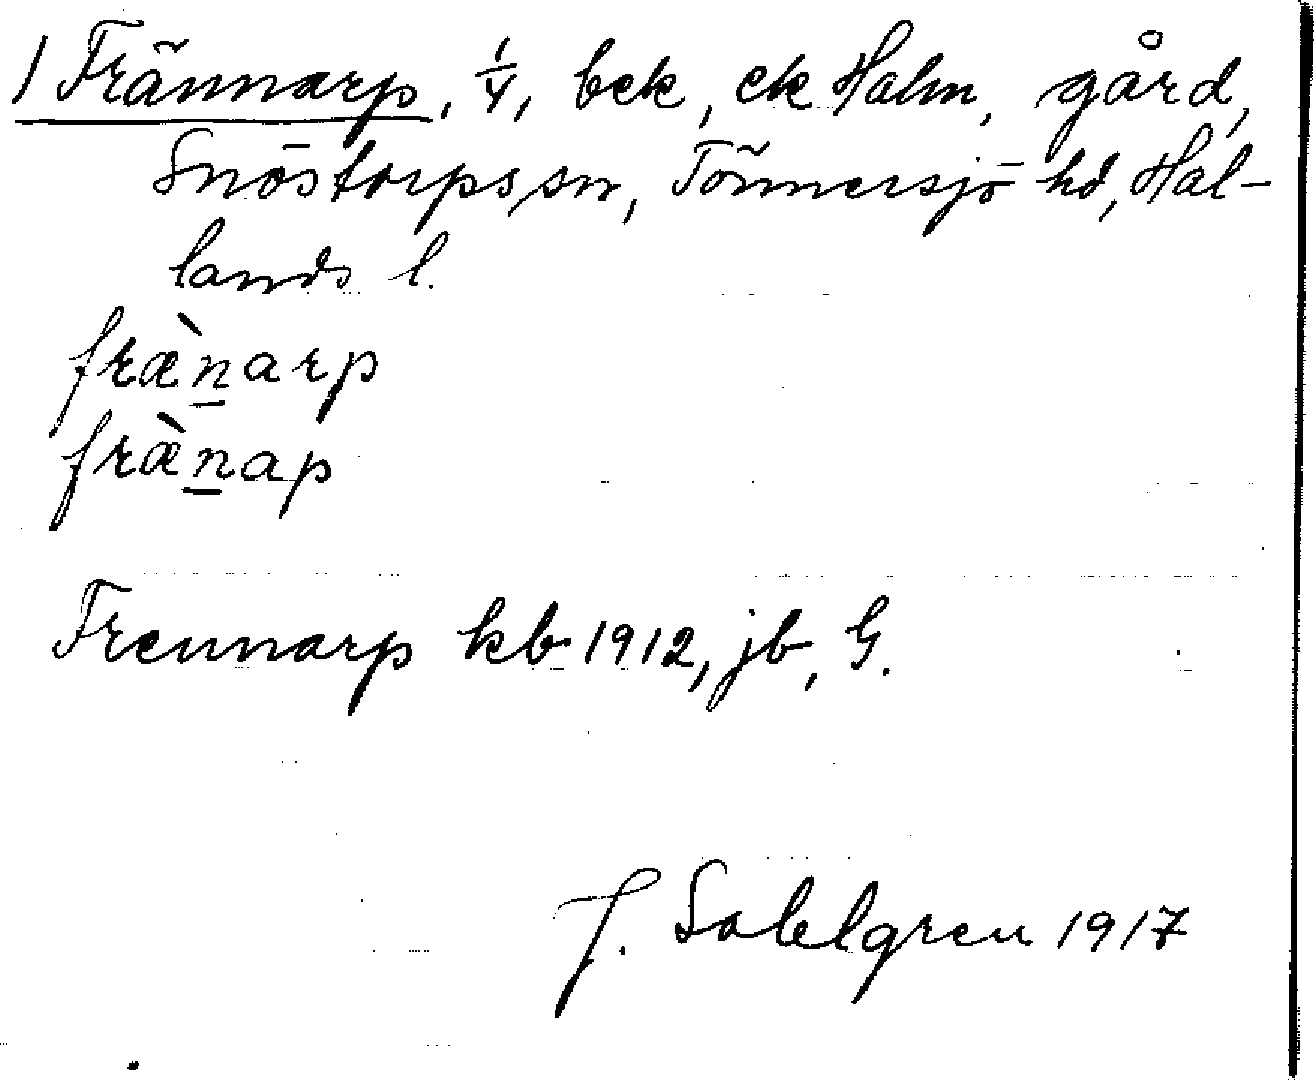 1 Frännarp, 1/4, bek, ek Halm, gård,
Snöstorps sn, Tönnersjö hd, Hal-
lands l.
fræ̀n̲arp
fræ̀n̲ap
Frennarp kb 1912, jb, G.
J. Sahlgren 1917